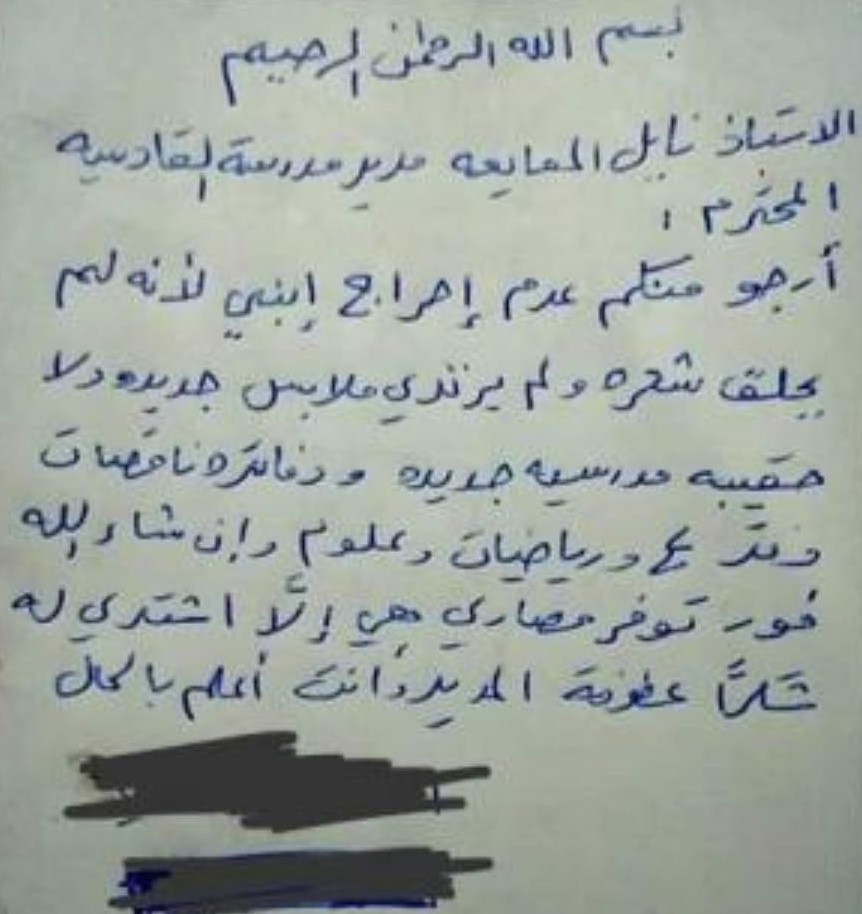 بسم الله الرحمن الرحيم
الاستاذ نايل المعايعه مدير مدرسة القادسيه
المحترم ،
أرجو منكم عدم إحراج إبني لأنه لم
يحلق شعره ولم يرتدي ملابس جديده ولا
حقيبه مدرسيه جديده ودفاتره ناقصات
ورياضيات وعلوم وإن شاء الله
فور توفر مصاري معي إلَّا اشتري له
شكرًا المدير وأنت أعلم بالحال